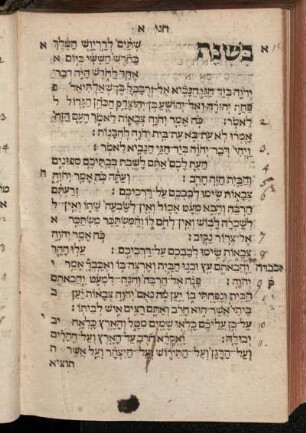 חגי א
בשנת שתים לדריוש המלך
בחדש הששי ביום
אחד לחדש היה דבר
יהוה ביד חגי הנביא אל זרבבל בן שאלתיאל
פחת יהודה ואל יהושע בן יהוצדק הכהן הגדול
לאמר: כה אמר יהוה צבאות לאמר העם הזה
אמרו לא עת בא עת בית יהוה להבנות:
ויהי דבר יהוה ביד חגי הנביא לאמר:
העת לכם אתם לשבת בבתיכם ספונים
והבית הזה חרב: ועתה כה אמר יהוה
צבאות שימו לבבכם על דרכיכם: זרעתם
הרבה והבא מעט אכול ואין לשבעה שתו ואין ל
לשכרה לבוש ואין לחם לו והמשתכר משתכר
אל צרור נקוב: כה אמר יהוה
צבאות שימו לבבכם על דרכיכם: עלו ההר
והבאתם עץ ובנו הבית וארצה בו ואכבד אמר
יהוה: פנה אל הרבה והנה למעט והבאתם
הבית ונפחתי בו יען מה נאם יהוה צבאות יען
ביתי אשר הוא חרב ואתם רצים איש לביתו:
על כן עליכם כלאו שמים מטל והארץ כלאה
יבולה: ואקרא חרב על הארץ ועל ההרים
ועל הדגן ועל התירוש ועל היצהר ועל אשר
תוציא